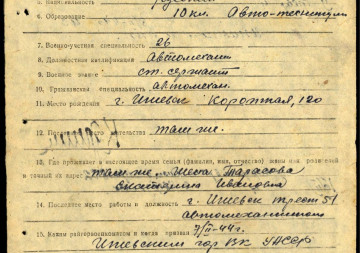 5. Национальность русский
6. Образование 10 кл. Авто-техникум
7. Военно-учетная специальность 26
8. Должностная квалификация Автомеханик
9. Военное звание ст. сержант
10. Гражданская специальность автомеханик
11. Место рождения г. Ижевск Коротная, 120
12. Постоянного жительства там же.
13. Где проживает в настоящее время семья (фамилия, имя, отчество) жены или родителей
и точный их адрес там же, жена Тарасова
Екатерина Ивановна
14. Последнее место работы и должность г. Ижевск трест 51
автомеханик
15. Каким райгорвоенкоматом и когда призван 7/II-44г.
Ижевским гор ВК УАССР